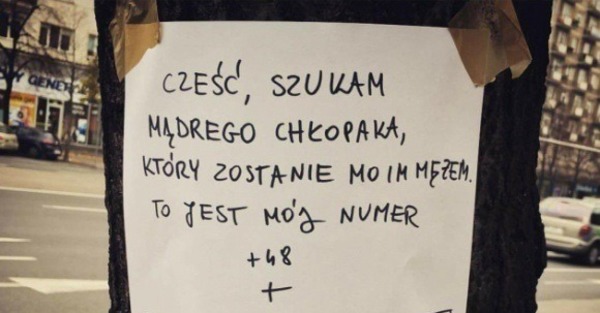 GENER
CZEŚĆ, SZUKAM
MĄDREGO CHŁOPAKA,
KTÓRY ZOSTANIE MOIM MĘŻEM.
TO JEST MÓJ NUMER
+48
+